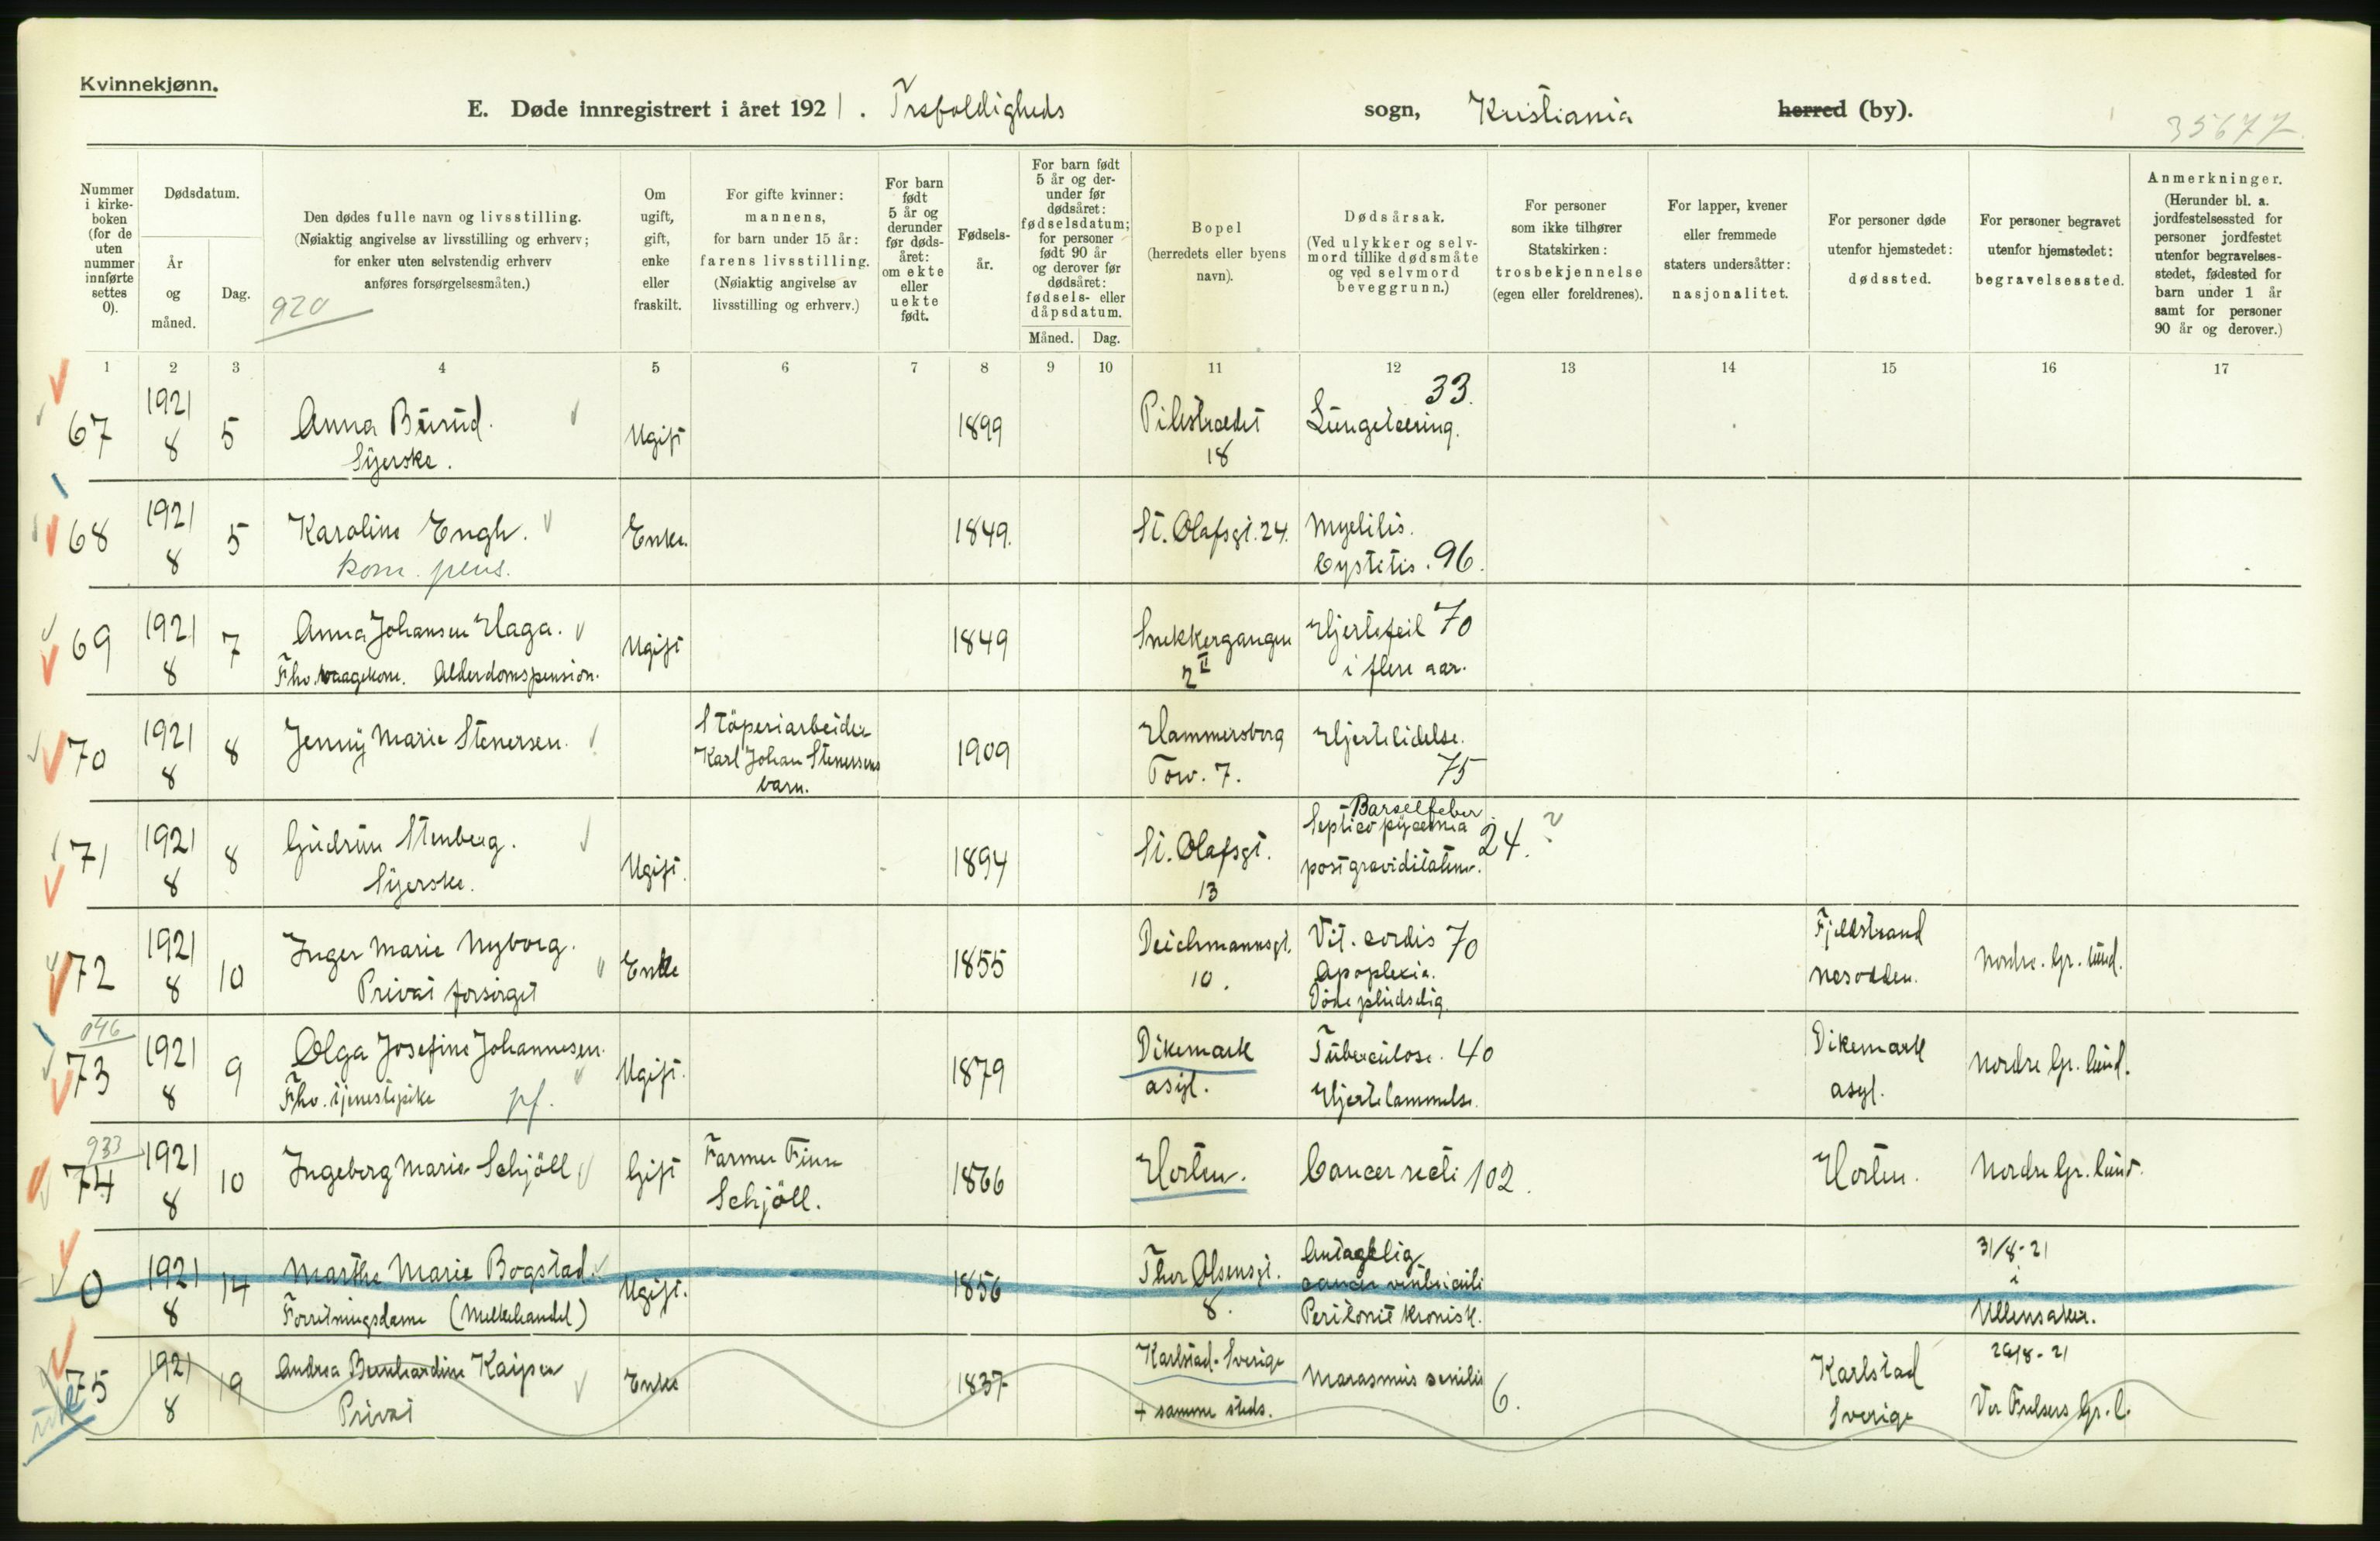 Kvinnekjønn.
E. Døde innregistrert i året 1921. Trefoldigheds sogn, Kristiania herred (by).
35677
Nummer i kirkeboken (for de uten nummer innførte settes 0).
Dødsdatum.
År og måned.
Dag.
Den dødes fulle navn og livsstilling.
(Nøiaktig angivelse av livsstilling og erhverv;
for enker uten selvstendig erhverv
anføres forsørgelsesmåten.)
920
Om ugift, gift, enke eller fraskilt.
For gifte kvinner:
mannens,
for barn under 15 år:
farens livsstilling.
(Nøiaktig angivelse av
livsstilling og erhverv.)
For barn født 5 år og derunder før dødsåret: om ekte eller uekte født.
Fødselsår.
For barn født 5 år og derunder før dødsåret: fødselsdatum; for personer født 90 år og derover før dødsåret: fødsels- eller dåpsdatum.
Måned. Dag.
Bopel
(herredets eller byens
navn).
Dødsårsak.
(Ved ulykker og selv-
mord tillike dødsmåte
og ved selvmord
beveggrunn.)
For personer
som ikke tilhører
Statskirken:
trosbekjennelse
(egen eller foreldrenes).
For lapper, kvener
eller fremmede
staters undersåtter:
nasjonalitet.
For personer døde
utenfor hjemstedet:
dødssted.
For personer begravet
utenfor hjemstedet:
begravelsessted.
Anmerkninger.
(Herunder bl. a.
jordfestelsessted for
personer jordfestet
utenfor begravelses-
stedet, fødested for
barn under 1 år
samt for personer
90 år og derover.)
1 2 3 4 5 6 7 8 9 10 11 12 13 14 15 16 17
67 1921 8 5 Anna Burud. Syerske. Ugift 1899 Pilestrædet 18 Lungetæring. 33.
68 1921 8 5 Karoline Engh. kom. pens. Enke. 1849. St. Olafsgt. 24. Myelitis. Cystitis. 96.
69 1921 8 7 Anna Johansen Haga. Fhv. vaagekone. Alderdomspension. Ugift 1849 Snekkergangen 2 II Hjertefeil 70 i flere aar.
70 1921 8 8 Jenny Marie Stenersen. Støperiarbeider Karl Johan Stenersens barn. 1909 Hammersborg Torv. 7. Hjertelidelse. 75
71 1921 8 8 Gudrun Stenberg. Syerske. Ugift. 1894 St. Olafsgt. 13 Barselfeber Septico pyæmia post graviditatem. 24. ?
72 1921 8 10 Inger Marie Nyborg. Privat forsørget Enke 1855 Deichmannsgt. 10. Vit. cordis 70 Apoplexia. Døde pludselig. Fjeldstrand Nesodden. Nordre. Gr. lund.
046
73 1921 8 9 Olga Josefine Johannesen. Fhv. tjenestepike pf. Ugift. 1879 Dikemark asyl. Tuberculose. 40 Hjertelammelse. Dikemark asyl. Nordre Gr. lund.
933
74 1921 8 10 Ingeborg Marie Schjöll Gift Farmer Finn Schjöll. 1866 Horten. Cancer recti 102. Horten. Nordre Gr. lund.
0 1921 8 14 Marthe Marie Bogstad. Forretningsdame (Melkehandel) Ugift. 1856 Thor Olsensgt. 8. Antagelig cancer ventriculi Peritonit kronisk. 31/8-21 i Ullensaker.
75 1921 8 19 Andrea Bernhardine Kaipsen Privat Enke 1837 Karlstad. Sverige + samme steds. Marasmus senilis 6. Karlstad Sverige 24/8-21 Vor Frelsers Gr. l.